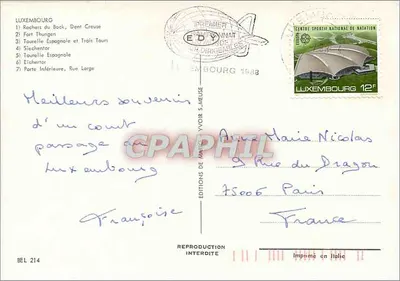 LUXEMBOURG
1) Rochers du Bock, Dent Creuse
2) Fort Thungen
3) Tourelle Espagnole et Trois Tours
4) Siechentor
5) Tourelle Espagnole
6) Eichertor
7) Porte Inférieure, Rue Large
EDY
EMBOURG 1988
CENTRE SPORTIF NATIONAL DU NATATION
LUXEMBOURG 12F
Meilleurs souvenirs
d'un court
passage au
Luxembourg
Françoise
CPAPHIL
EDITIONS DE
YVOIR S. MEUSE
Anne Marie Nicolas
9 Rue du Dragon
75006 Paris
France
REPRODUCTION
INTERDITE
Imprimé en Italie
BEL 214